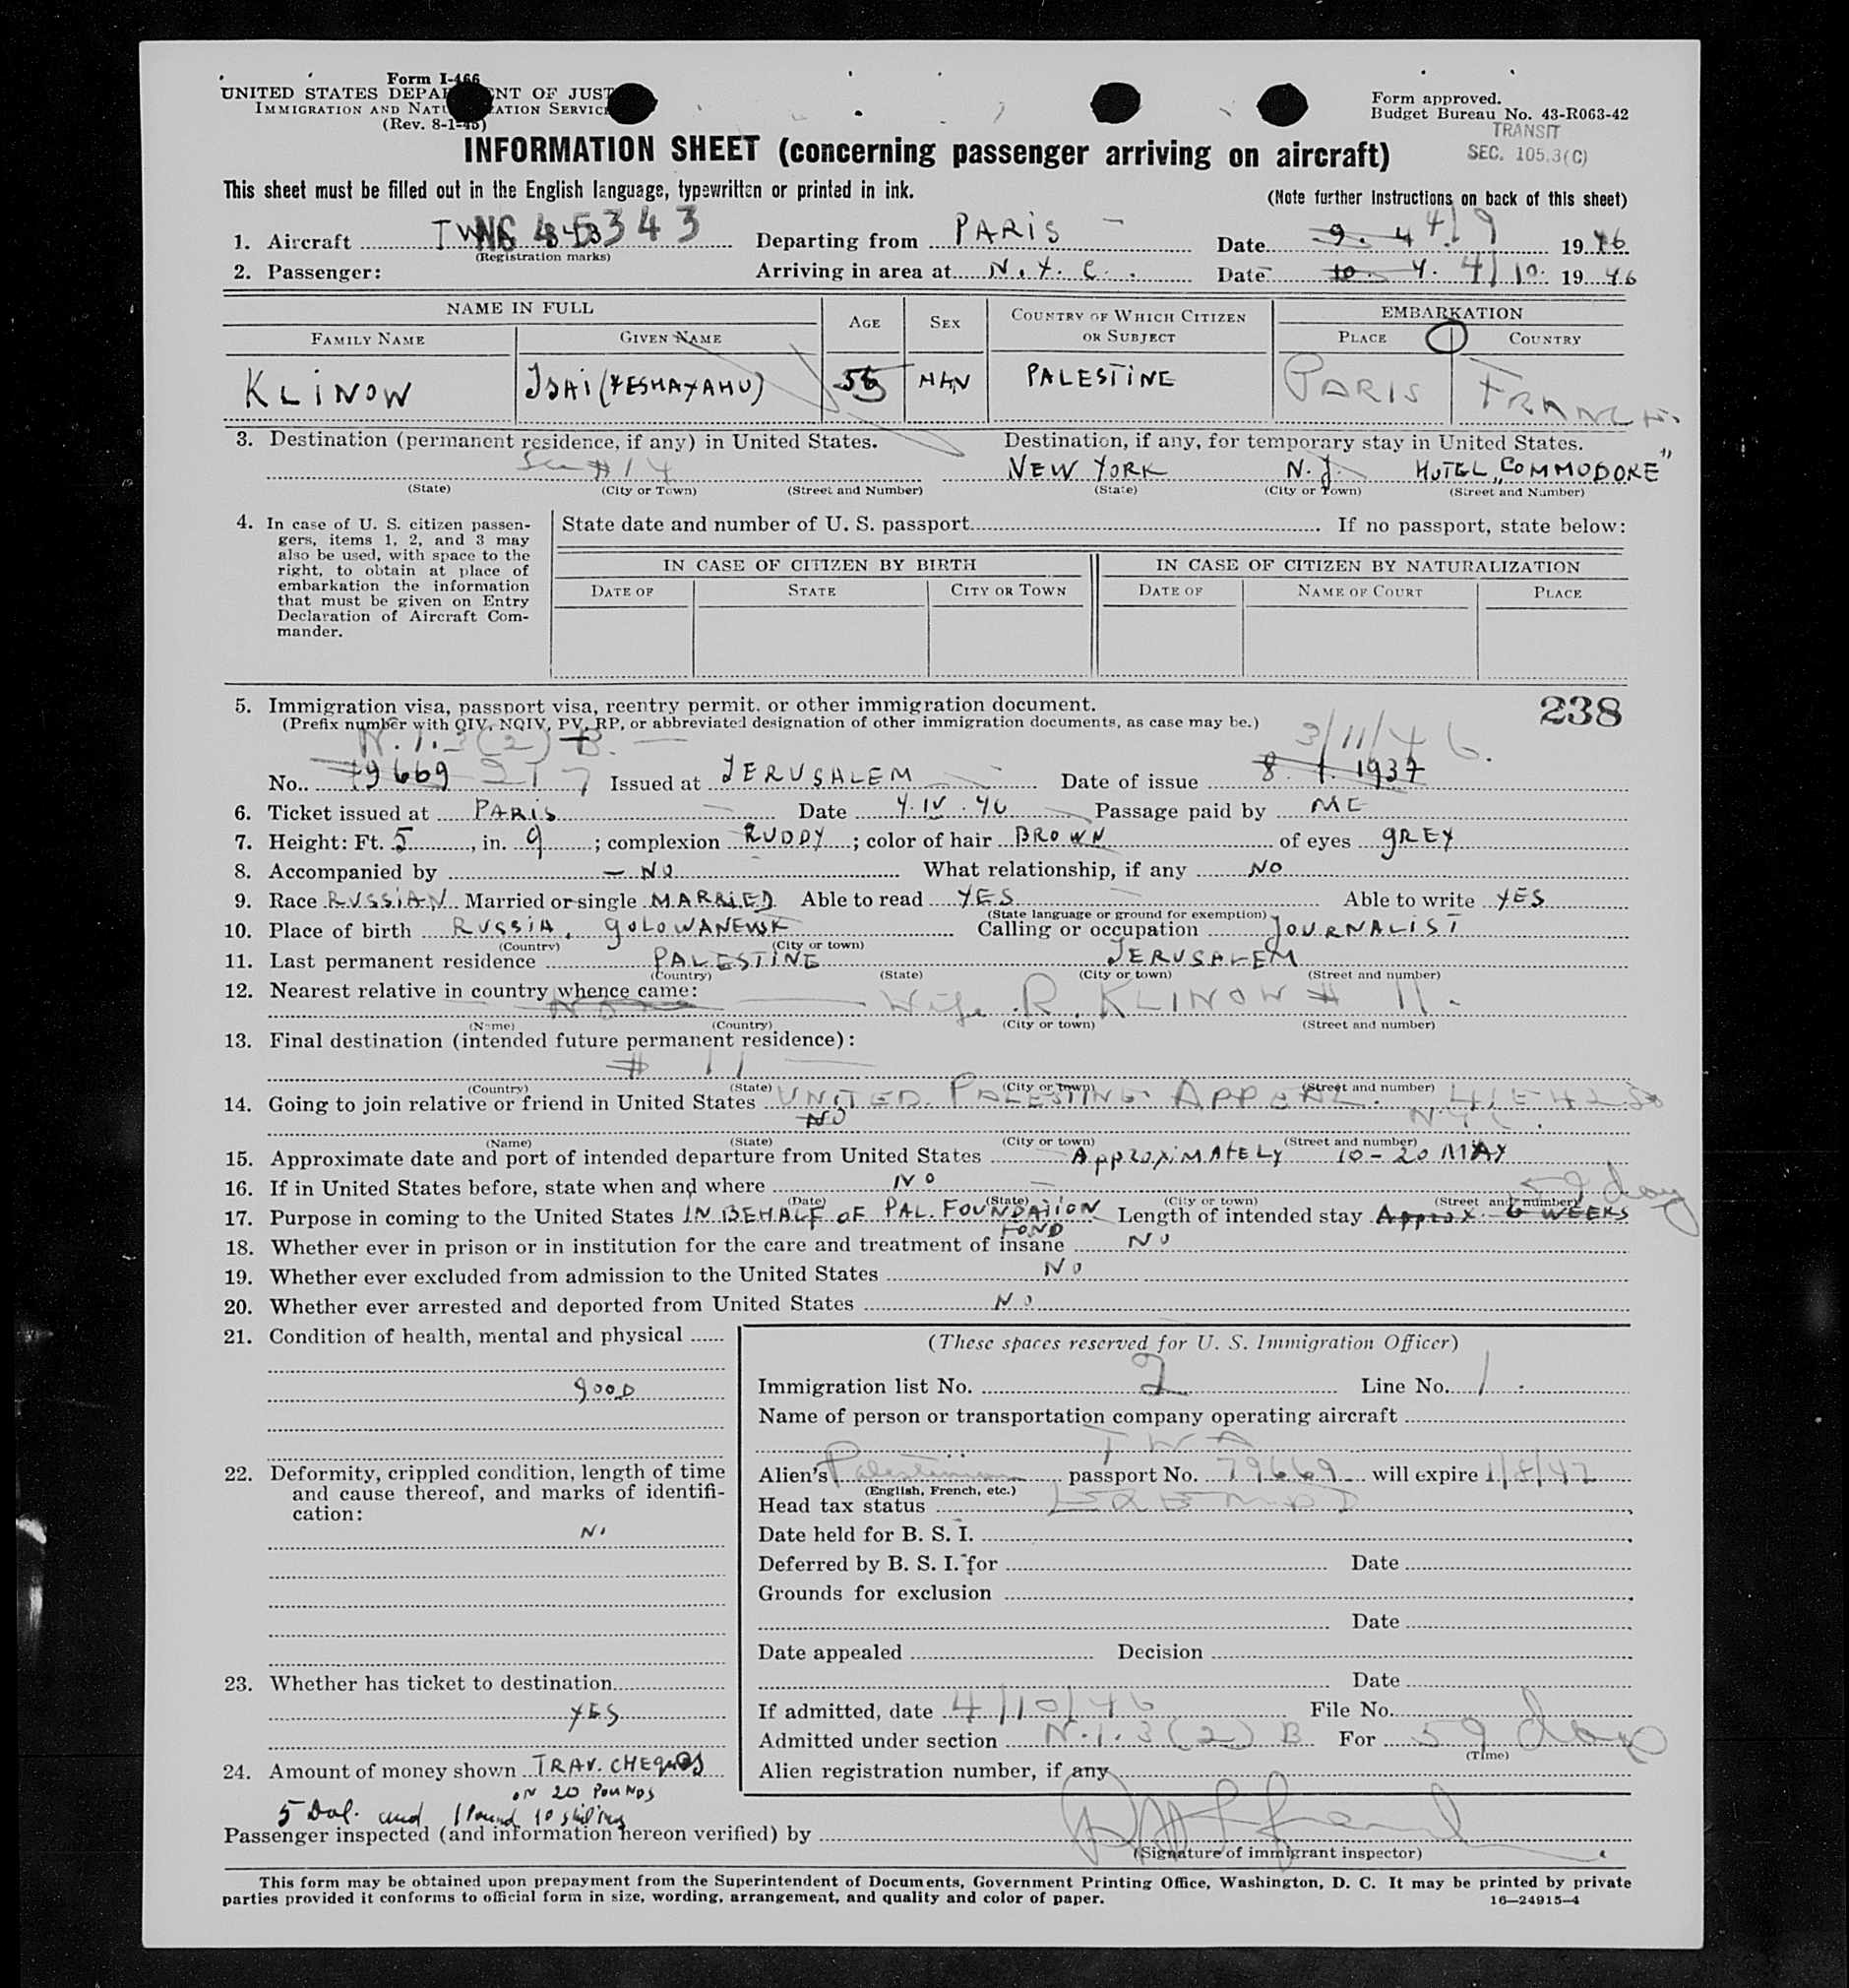 Form I-466
UNITED STATES DEPARTMENT OF JUSTICE
IMMIGRATION AND NATURALIZATION SERVICE
(Rev. 8-1-45)
Form approved.
Budget Bureau No. 43-R063-42
TRANSIT
SEC. 105.3(C)
INFORMATION SHEET (concerning passenger arriving on aircraft)
This sheet must be filled out in the English language, typewritten or printed in ink.
(Note further instructions on back of this sheet)
1. Aircraft 343 Departing from PARIS Date 9. 4 4/9 1946
(Registration marks)
2. Passenger: Arriving in area at N.Y.C. Date 10. 4. 4/10. 1946
NAME IN FULL AGE SEX COUNTRY OF WHICH CITIZEN OR SUBJECT EMBARKATION
FAMILY NAME GIVEN NAME PLACE COUNTRY
KLINOW ISAI (YESHAYAHU) MAN PALESTINE PARIS FRANCE.
3. Destination (permanent residence, if any) in United States. Destination, if any, for temporary stay in United States.
See #14 NEW YORK N.Y. HOTEL „COMMODORE"
(State) (City or Town) (Street and Number) (State) (City or Town) (Street and Number)
4. In case of U. S. citizen passengers, items 1, 2, and 3 may also be used, with space to the right, to obtain at place of embarkation the information that must be given on Entry Declaration of Aircraft Commander.
State date and number of U. S. passport If no passport, state below:
IN CASE OF CITIZEN BY BIRTH IN CASE OF CITIZEN BY NATURALIZATION
DATE OF STATE CITY OR TOWN DATE OF NAME OF COURT PLACE
5. Immigration visa, passport visa, reentry permit, or other immigration document. 238
(Prefix number with QIV, NQIV, PV, RP, or abbreviated designation of other immigration documents, as case may be.)
N.I.3(2) B. 3/11/46.
No. 79669 217 Issued at JERUSALEM Date of issue 8. 1. 1937
6. Ticket issued at PARIS Date 4.IV.46 Passage paid by ME
7. Height: Ft. 5, in. 9; complexion RUDDY; color of hair BROWN of eyes GREY
8. Accompanied by — NO What relationship, if any NO
9. Race RUSSIAN Married or single MARRIED Able to read YES Able to write YES
(State language or ground for exemption)
10. Place of birth RUSSIA, GOLOWANEWSK Calling or occupation JOURNALIST
(Country) (City or town)
11. Last permanent residence PALESTINE JERUSALEM
(Country) (State) (City or town) (Street and number)
12. Nearest relative in country whence came:
Wife R. KLINOW # 11.
(Name) (Country) (City or town) (Street and number)
13. Final destination (intended future permanent residence):
# 11
(Country) (State) (City or town) (Street and number)
14. Going to join relative or friend in United States UNITED PALESTINE APPEAL. 41 E 42 St
NO N.Y.C.
(Name) (State) (City or town) (Street and number)
15. Approximate date and port of intended departure from United States APPROXIMATELY 10-20 MAY
16. If in United States before, state when and where NO
(Date) (State) (City or town) (Street and number)
59 days
17. Purpose in coming to the United States IN BEHALF OF PAL. FOUNDATION Length of intended stay APPROX. 6 WEEKS
FOND
18. Whether ever in prison or in institution for the care and treatment of insane NO
19. Whether ever excluded from admission to the United States NO
20. Whether ever arrested and deported from United States NO
21. Condition of health, mental and physical
GOOD
22. Deformity, crippled condition, length of time and cause thereof, and marks of identification:
NO
23. Whether has ticket to destination
YES
24. Amount of money shown TRAV. CHEQUES
ON 20 POUNDS
5 Dol. and 1 Pound 10 shiling
(These spaces reserved for U. S. Immigration Officer)
Immigration list No. 2 Line No. 1.
Name of person or transportation company operating aircraft
TWA
Alien's Palestinian passport No. 79669 will expire 1/8/47
(English, French, etc.)
Head tax status EXEMPT
Date held for B. S. I.
Deferred by B. S. I. for Date
Grounds for exclusion
Date
Date appealed Decision
Date
If admitted, date 4/10/46 File No.
Admitted under section N.I.3(2)B For 59 days
(Time)
Alien registration number, if any
Passenger inspected (and information hereon verified) by
(Signature of immigrant inspector)
This form may be obtained upon prepayment from the Superintendent of Documents, Government Printing Office, Washington, D. C. It may be printed by private
parties provided it conforms to official form in size, wording, arrangement, and quality and color of paper. 16—24915-4